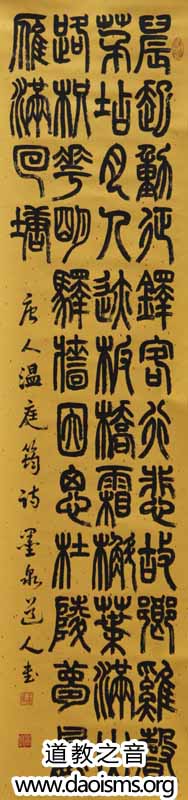 晨起動征鐸客行悲故鄉雞聲
茅坫月人迹板橋霜槲葉滿山
路枳花明驛牆因思杜陵夢鳧
雁滿回塘
唐人温庭筠詩墨泉道人書
道教之音
www.daoisms.org